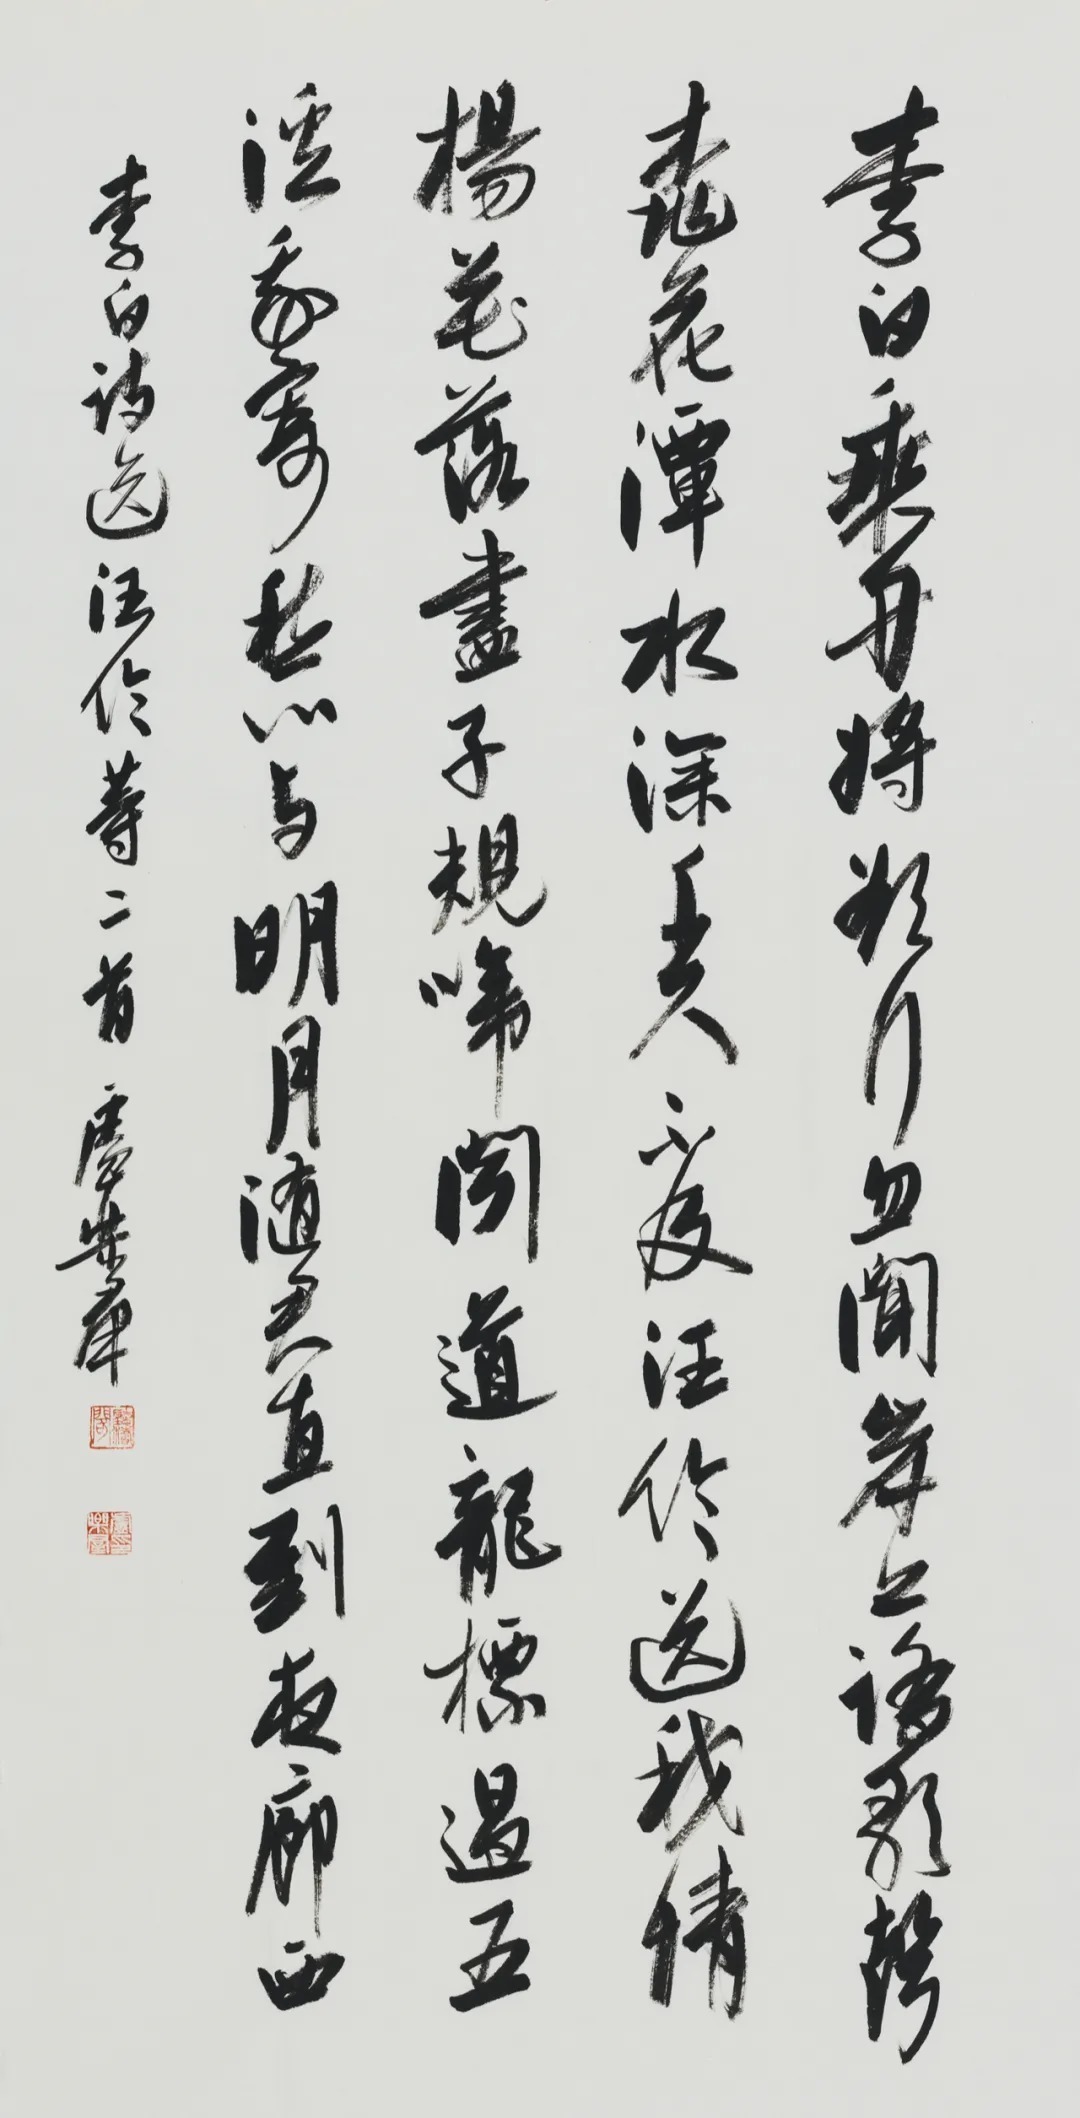 李白乘舟將欲行忽聞岸上踏歌聲
桃花潭水深千尺不及汪倫送我情
楊花落盡子規啼聞道龍標過五
溪我寄愁心与明月随君直到夜廊西
李白詩送汪倫等二首 盧樂羣